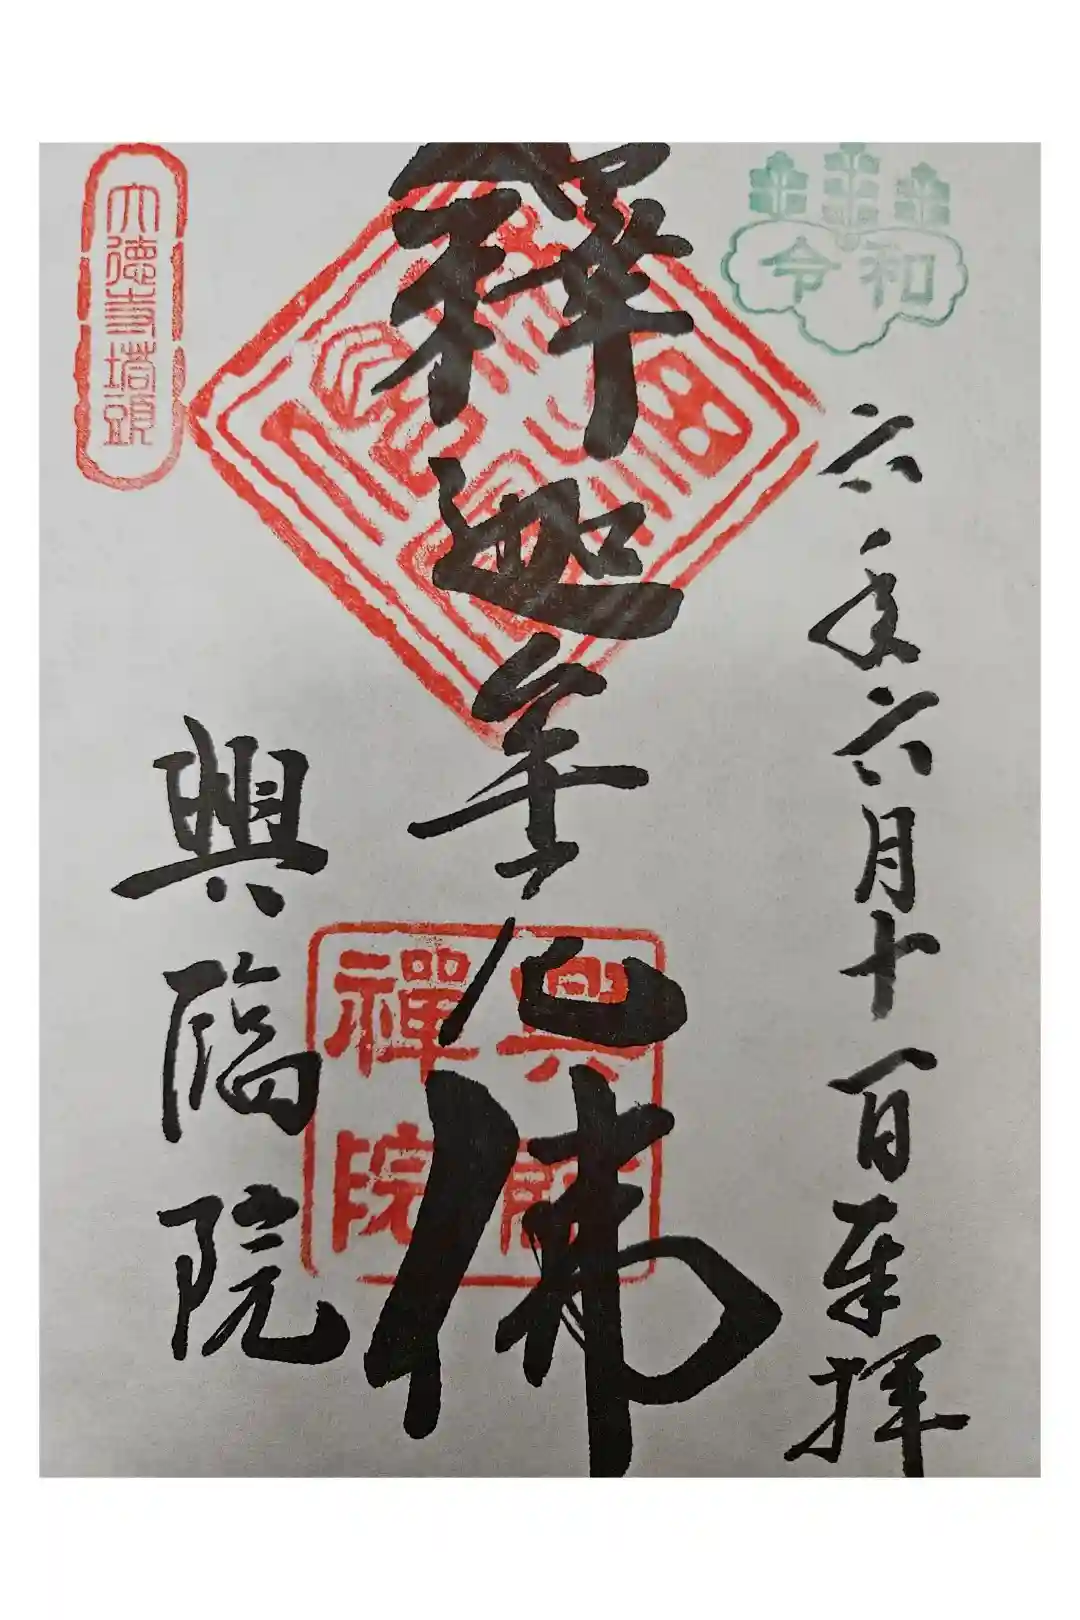 令和
六年六月十一日奉拝
釋迦牟尼佛
興臨禪院
大徳寺塔頭
興臨院